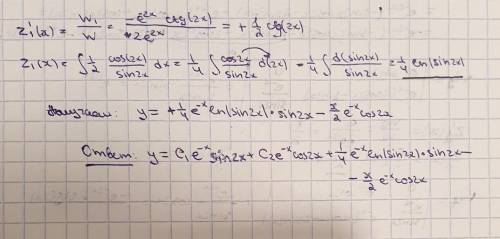 z₁'(x) = W₁/W = (-e^{-2x} ctg(2x))/(-2e^{-2x}) = +1/2 ctg(2x)
z₁(x) = ∫ 1/2 cos(2x)/sin2x dx = 1/4 ∫ cos2x/sin2x d(2x) = 1/4 ∫ d(sin2x)/sin2x = 1/4 ln(sin2x)
Получаем: y = +1/4 e^{-x} ln(sin2x)·sin2x - x/2 e^{-x} cos2x
Ответ: y = C₁e^{-x} sin2x + C₂e^{-x} cos2x + 1/4 e^{-x} ln(sin2x)·sin2x -
- x/2 e^{-x} cos2x